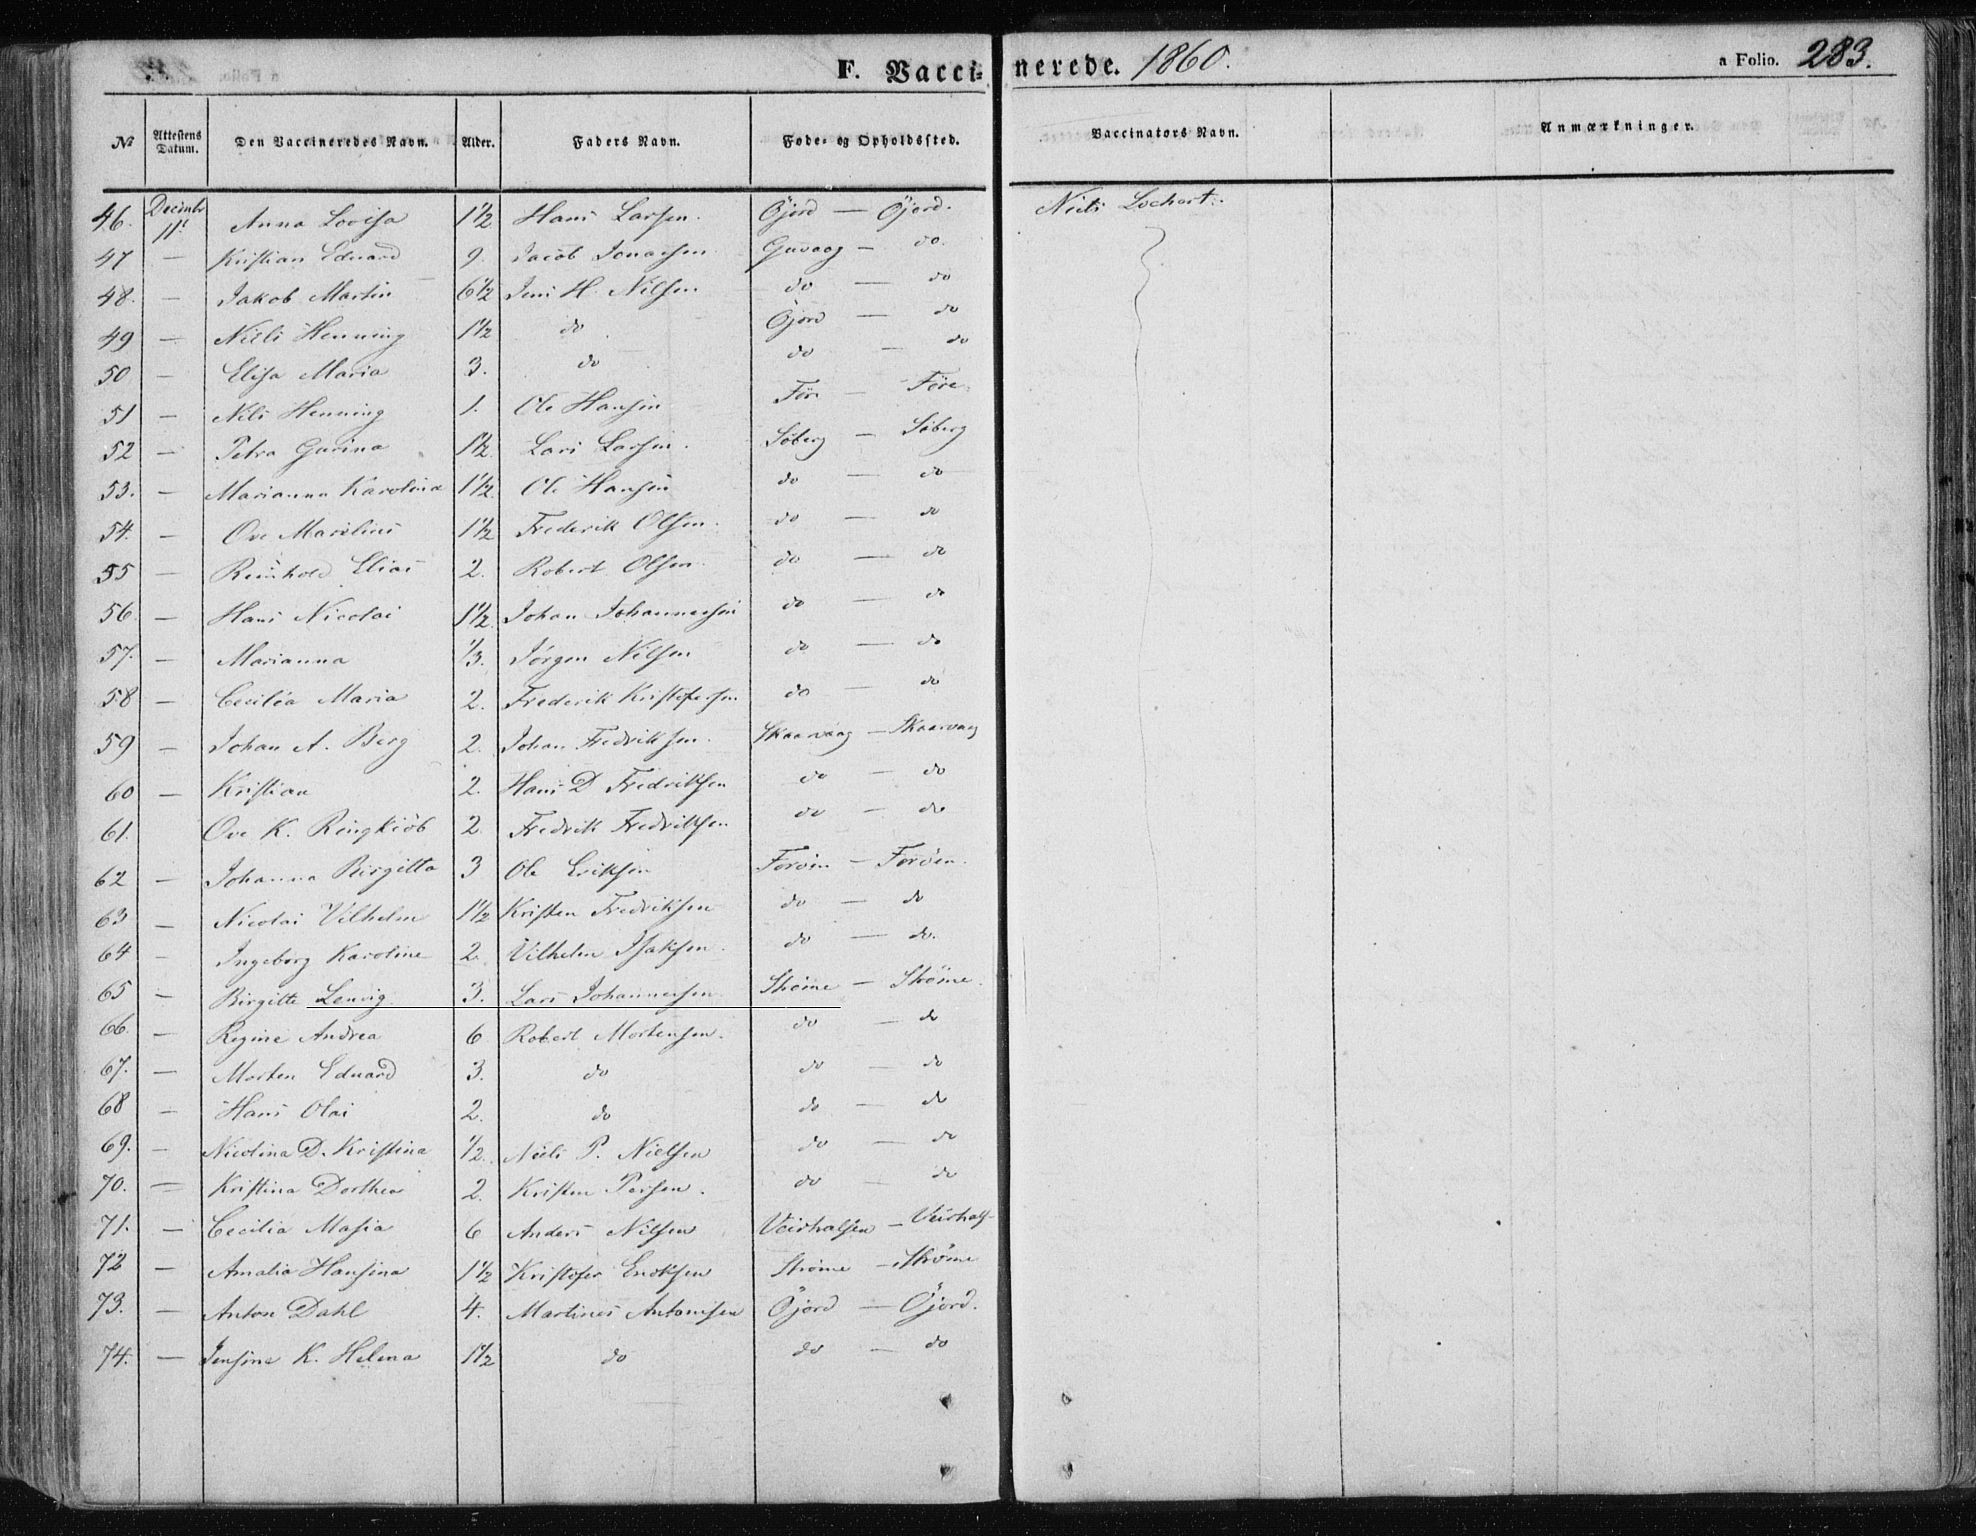 F. Vaccinerede. 1860. a Folio. 283.
№ Attestens Datum. Den Vaccineredes Navn. Alder. Faders Navn. Føde- og Opholdssted. Vaccinators Navn. Anmærkninger.
46. Decembr 11. Anna Lovisa 1 1/2 Hans Larsen. Öjord — Öjord. Niels Lochert.
47 — Kristian Eduard 9. Jacob Jonassen Guvaag — do.
48. — Jakob Martin 6 1/2 Jens H. Nilsen do — do
49 — Niels Henning 1 1/2 do Öjord — do
50 — Elisa Maria 3. do do — do
51 — Nils Henning 1. Ole Hansen Före — Före.
52 — Petra Gurina 1 1/2. Lars Larsen. Söberg — Söberg
53. — Marianna Karolina 1 1/2. Ole Hansen do — do
54. — Ove Marelius 1 1/2 Frederik Olsen. do — do
55 — Reinhold Elias 2. Robert Olsen. do — do
56 — Hans Nicolai 1 1/2. Johan Johannessen do — do
57. — Marianna 1/3. Jörgen Nilsen do — do
58 — Cecilia Maria 2. Frederik Kristofersen do — do
59 — Johan A. Berg 2. Johan Fredriksen. Skaarvaag — Skaarvaag
60 — Kristian 2. Hans D Fredriksen do — do
61. — Ove K. Ringkiöb 2. Fredrik Fredriksen do — do
62 — Johanna Birgitta 3 Ole Eriksen Foröen — Foröen.
63 — Nicolai Vilhelm 1 1/2 Kristen Fredriksen do — do
64 — Ingeborg Karoline 2. Vilhelm Isaksen. do — do.
65 — Birgitte Lenvig 3. Lars Johannessen. Ströme — Ströme.
66. — Regine Andrea 6 Robert Mortensen. do — do
67. — Morten Eduard 3. do do — do
68 — Hans Olai 2. do do — do
69. — Nicolina D. Kristina 1/2. Niels P. Nielsen do — do
70. — Kristina Dorthea 2. Kristen Persen. do — do
71. — Cecilia Masia 6 Anders Nilsen Veidhalsen — Veidhals
72 — Amalia Hansina 1 1/2 Kristofer Enoksen Ströme — Ströme
73. — Anton Dahl 4. Martines Antonisen Öjord — Öjord.
74. — Jensine K. Helena 1 1/2 do do — do